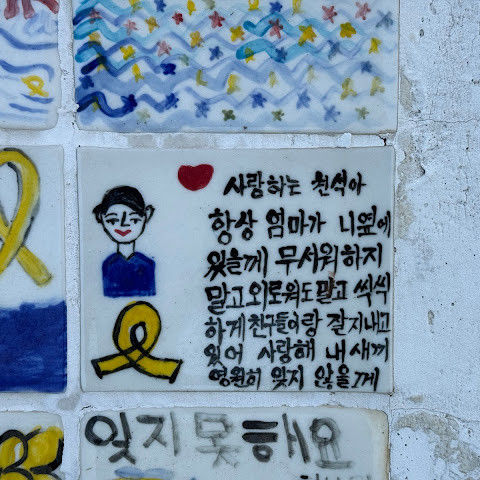 사랑하는 천석아
항상 엄마가 니옆에
있을께 무서워하지
말고 외로워도 말고 씩씩
하게 친구들이랑 잘지내고
있어 사랑해 내새끼
영원히 잊지 않을께
잊지 못해요